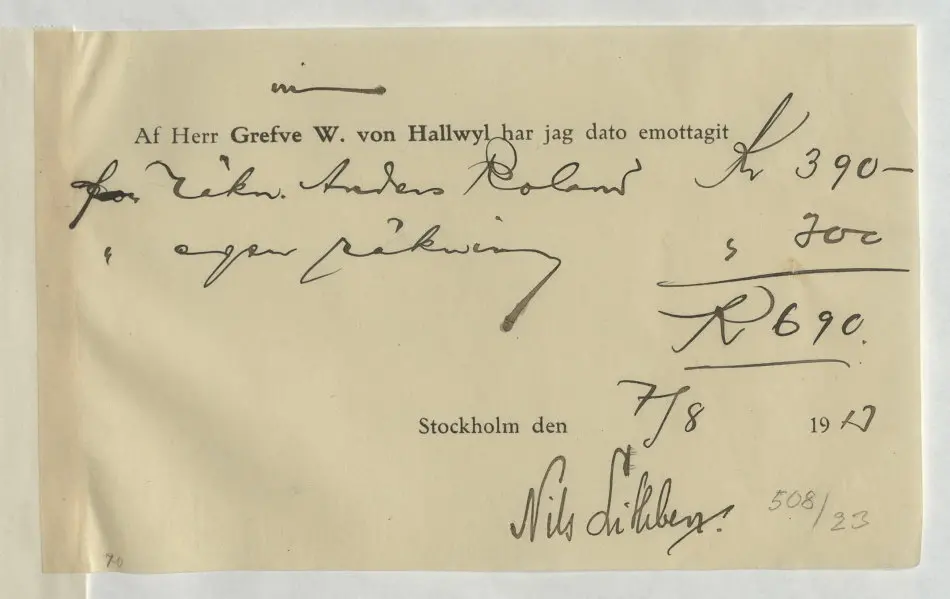 Af Herr Grefve W. von Hallwyl har jag dato emottagit
för räkn. Anders Roland Kr 390–
" egen räkning " 300
Kr 690.
Stockholm den 7/8 1917
Nils Lithberg.
508/23
70